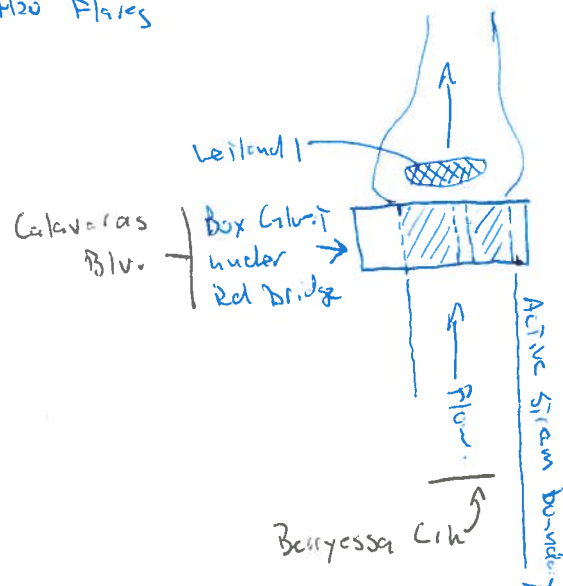 H2O Flares
Wetland 1
Calaveras
Blv.
Box Culvert
under
Rd Bridge
Flow
Active Stream boundary
Berryessa Crk